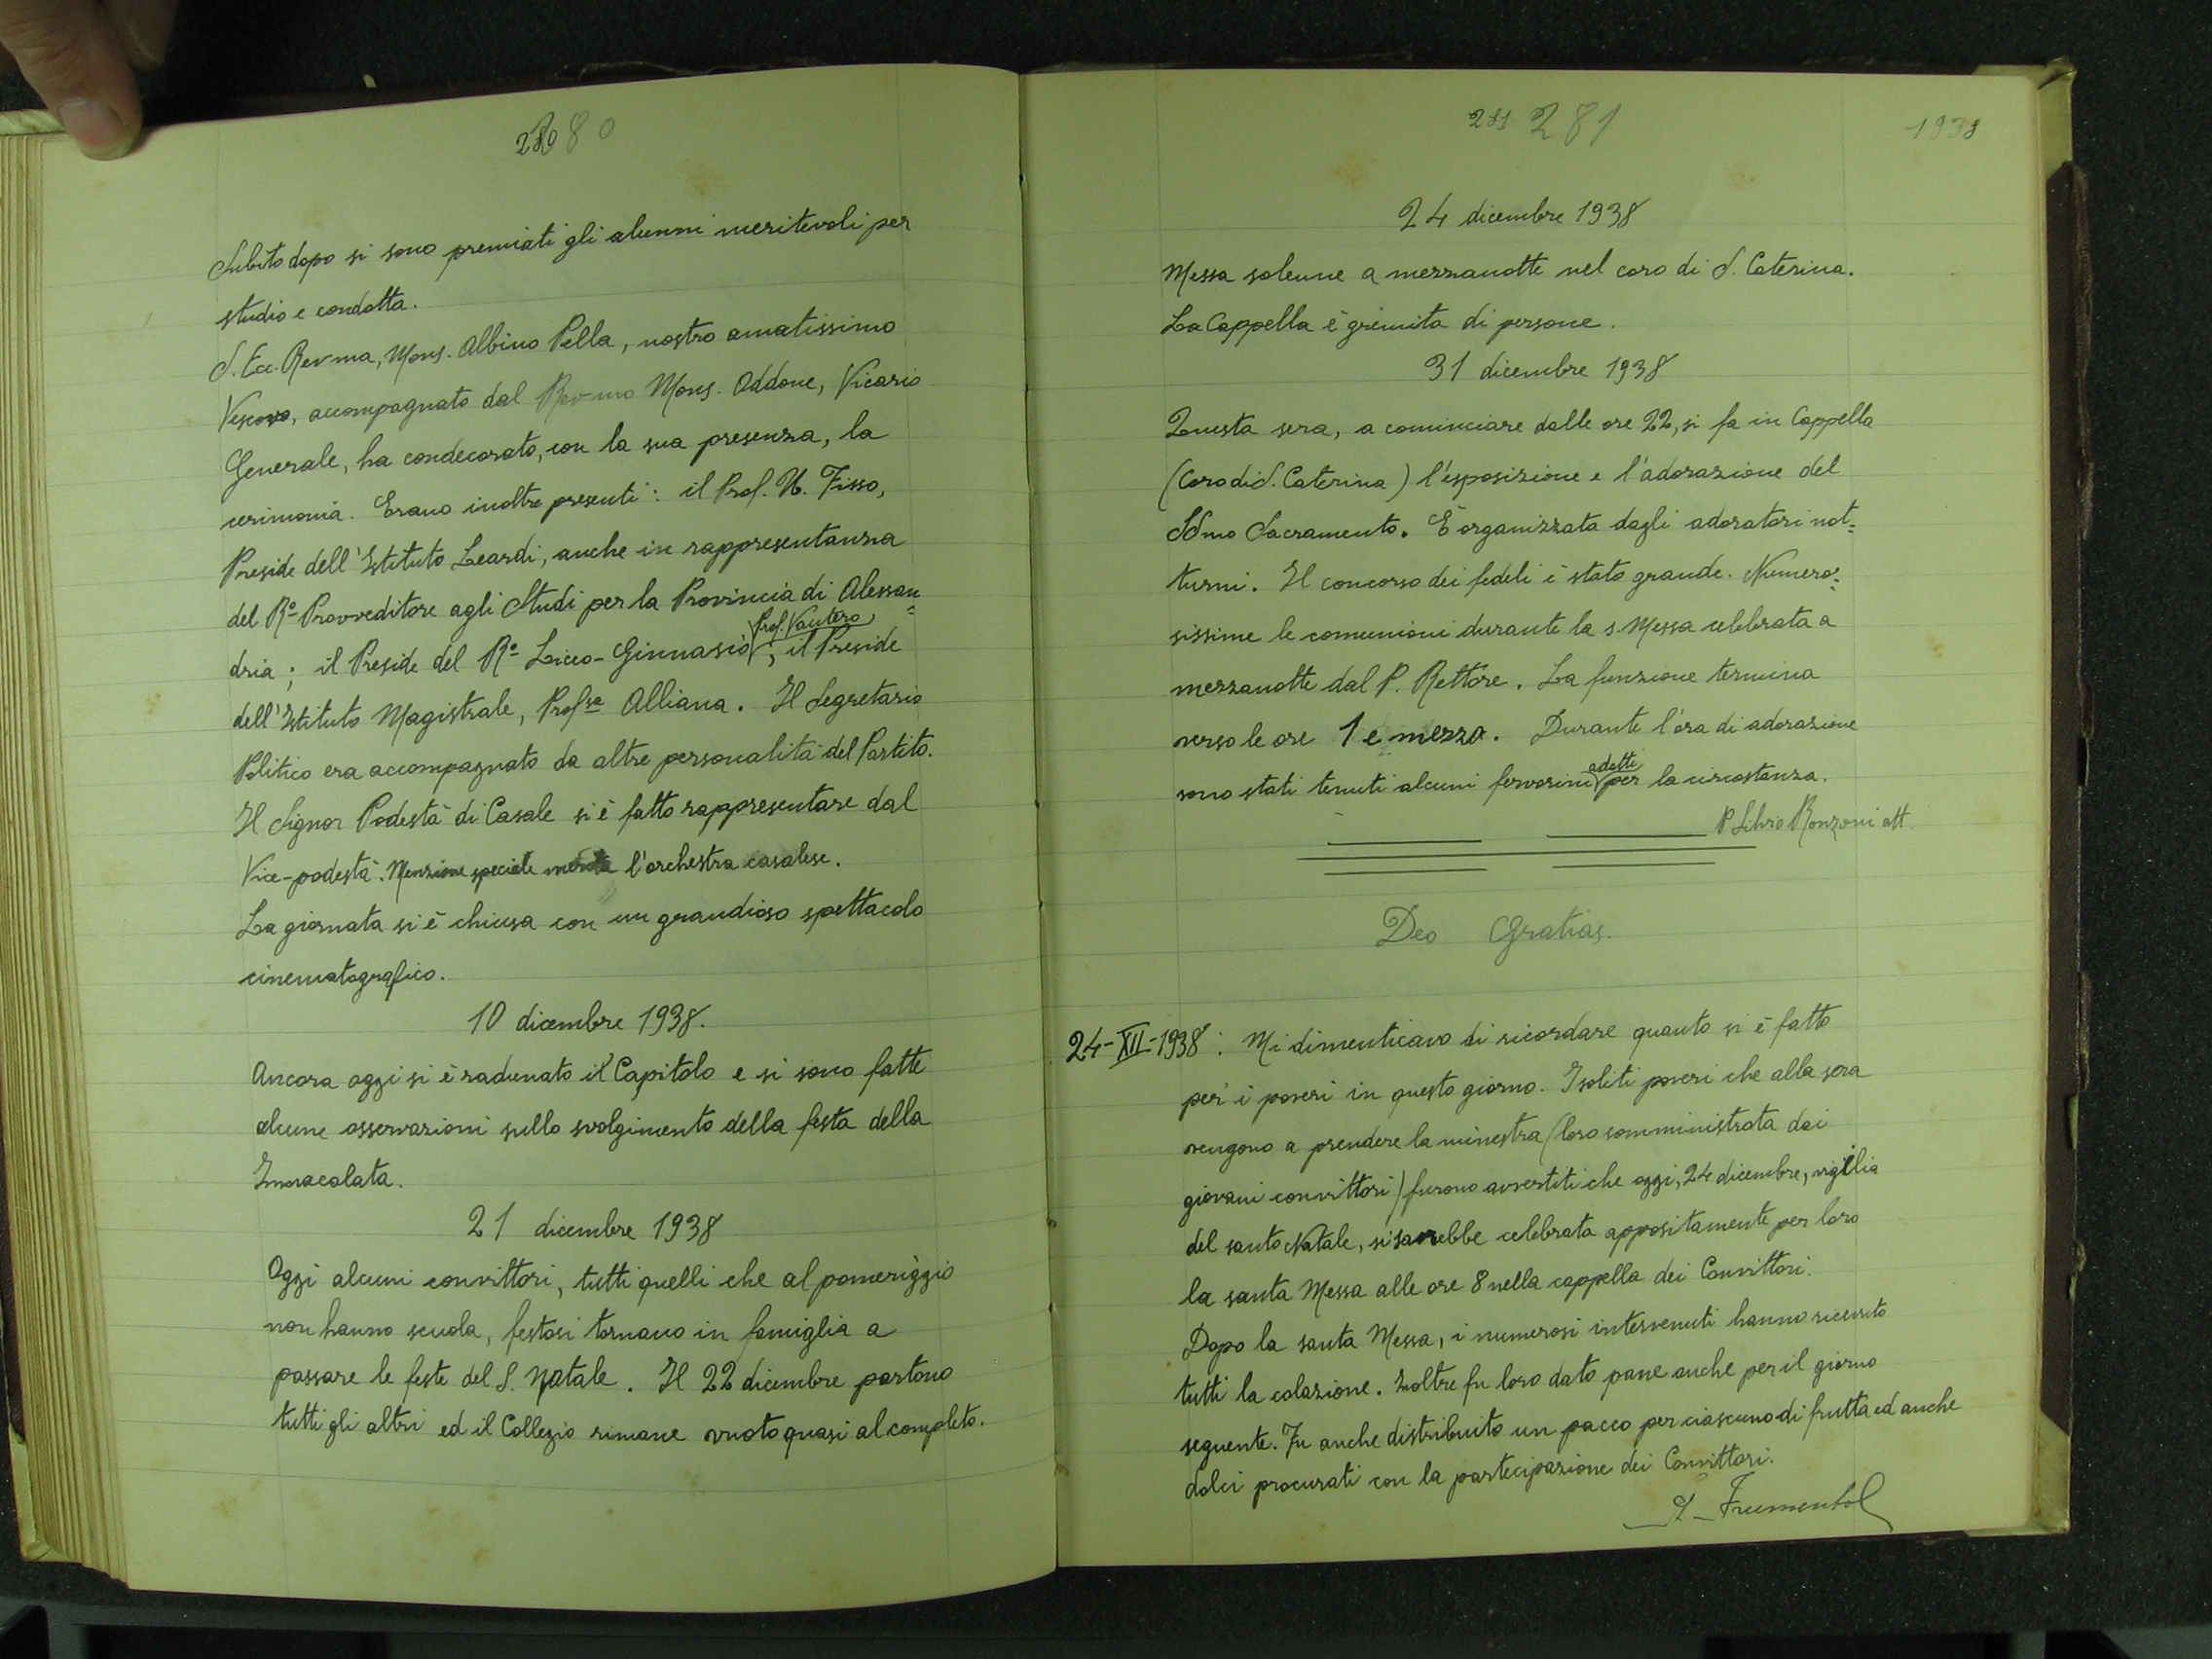 280 280
Subito dopo si sono premiati gli alunni meritevoli per
studio e condotta.
S. Ecc. Rev.ma, Mons. Albino Pella, nostro amatissimo
Vescovo, accompagnato dal Rev.mo Mons. Oddone, Vicario
Generale, ha condecorato, con la sua presenza, la
cerimonia. Erano inoltre presenti: il Prof. U. Fisso,
Preside dell'Istituto Leardi, anche in rappresentanza
del Rº Provveditore agli Studi per la Provincia di Alessan=
dria; il Preside del Rº Liceo-Ginnasio, Prof. Vautero, il Preside
dell'Istituto Magistrale, Prof.sa Alliana. Il Segretario
Politico era accompagnato da altre personalità del Partito.
Il Signor Podestà di Casale si è fatto rappresentare dal
Vice-podestà. Menzione speciale merita l'orchestra casalese.
La giornata si è chiusa con un grandioso spettacolo
cinematografico.
10 dicembre 1938.
Ancora oggi si è radunato il Capitolo e si sono fatte
alcune osservazioni sullo svolgimento della festa della
Immacolata.
21 dicembre 1938
Oggi alcuni convittori, tutti quelli che al pomeriggio
non hanno scuola, festosi tornano in famiglia a
passare le feste del S. Natale. Il 22 dicembre partono
tutti gli altri ed il Collegio rimane vuoto quasi al completo.
281 281 1938
24 dicembre 1938
Messa solenne a mezzanotte nel coro di S. Caterina.
La Cappella è gremita di persone.
31 dicembre 1938
Questa sera, a cominciare dalle ore 22, si fa in Cappella
(Coro di S. Caterina) l'esposizione e l'adorazione del
SS.mo Sacramento. È organizzata dagli adoratori not=
turni. Il concorso dei fedeli è stato grande. Numero=
sissime le comunioni durante la s. Messa celebrata a
mezzanotte dal P. Rettore. La funzione termina
verso le ore 1 e mezza. Durante l'ora di adorazione
sono stati tenuti alcuni fervorini adatti per la circostanza.
P. Silvio Ronzoni att.
Deo Gratias.
24-XII-1938: Mi dimenticavo di ricordare quanto si è fatto
per i poveri in questo giorno. I soliti poveri che alla sera
vengono a prendere la minestra (loro somministrata dai
giovani convittori) furono avvertiti che oggi, 24 dicembre, vigilia
del santo Natale, si sarebbe celebrata appositamente per loro
la santa Messa alle ore 8 nella cappella dei Convittori.
Dopo la santa Messa, i numerosi intervenuti hanno ricevuto
tutti la colazione. Inoltre fu loro dato pane anche per il giorno
seguente. Fu anche distribuito un pacco per ciascuno di frutta ed anche
dolci procurati con la partecipazione dei Convittori.